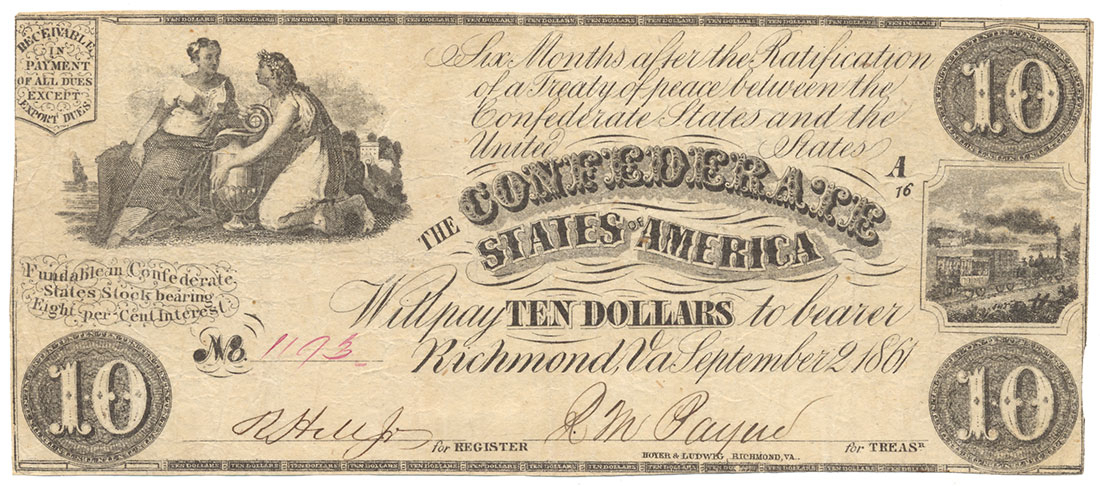 TEN DOLLARS TEN DOLLARS TEN DOLLARS TEN DOLLARS TEN DOLLARS TEN DOLLARS TEN DOLLARS
RECEIVABLE
IN
PAYMENT
OF ALL DUES
EXCEPT
EXPORT DUES
Six Months after the Ratification
of a Treaty of peace between the
Confederate States and the
United States
10
A
16
THE CONFEDERATE
STATES OF AMERICA
Fundable in Confederate
States Stock bearing
Eight per Cent Interest
Will pay TEN DOLLARS to bearer
No. 1193
Richmond, Va September 2 1861
10
10
R Hill Jr for REGISTER
R M Payne for TREASR
HOYER & LUDWIG, RICHMOND, VA.
TEN DOLLARS TEN DOLLARS TEN DOLLARS TEN DOLLARS TEN DOLLARS TEN DOLLARS TEN DOLLARS